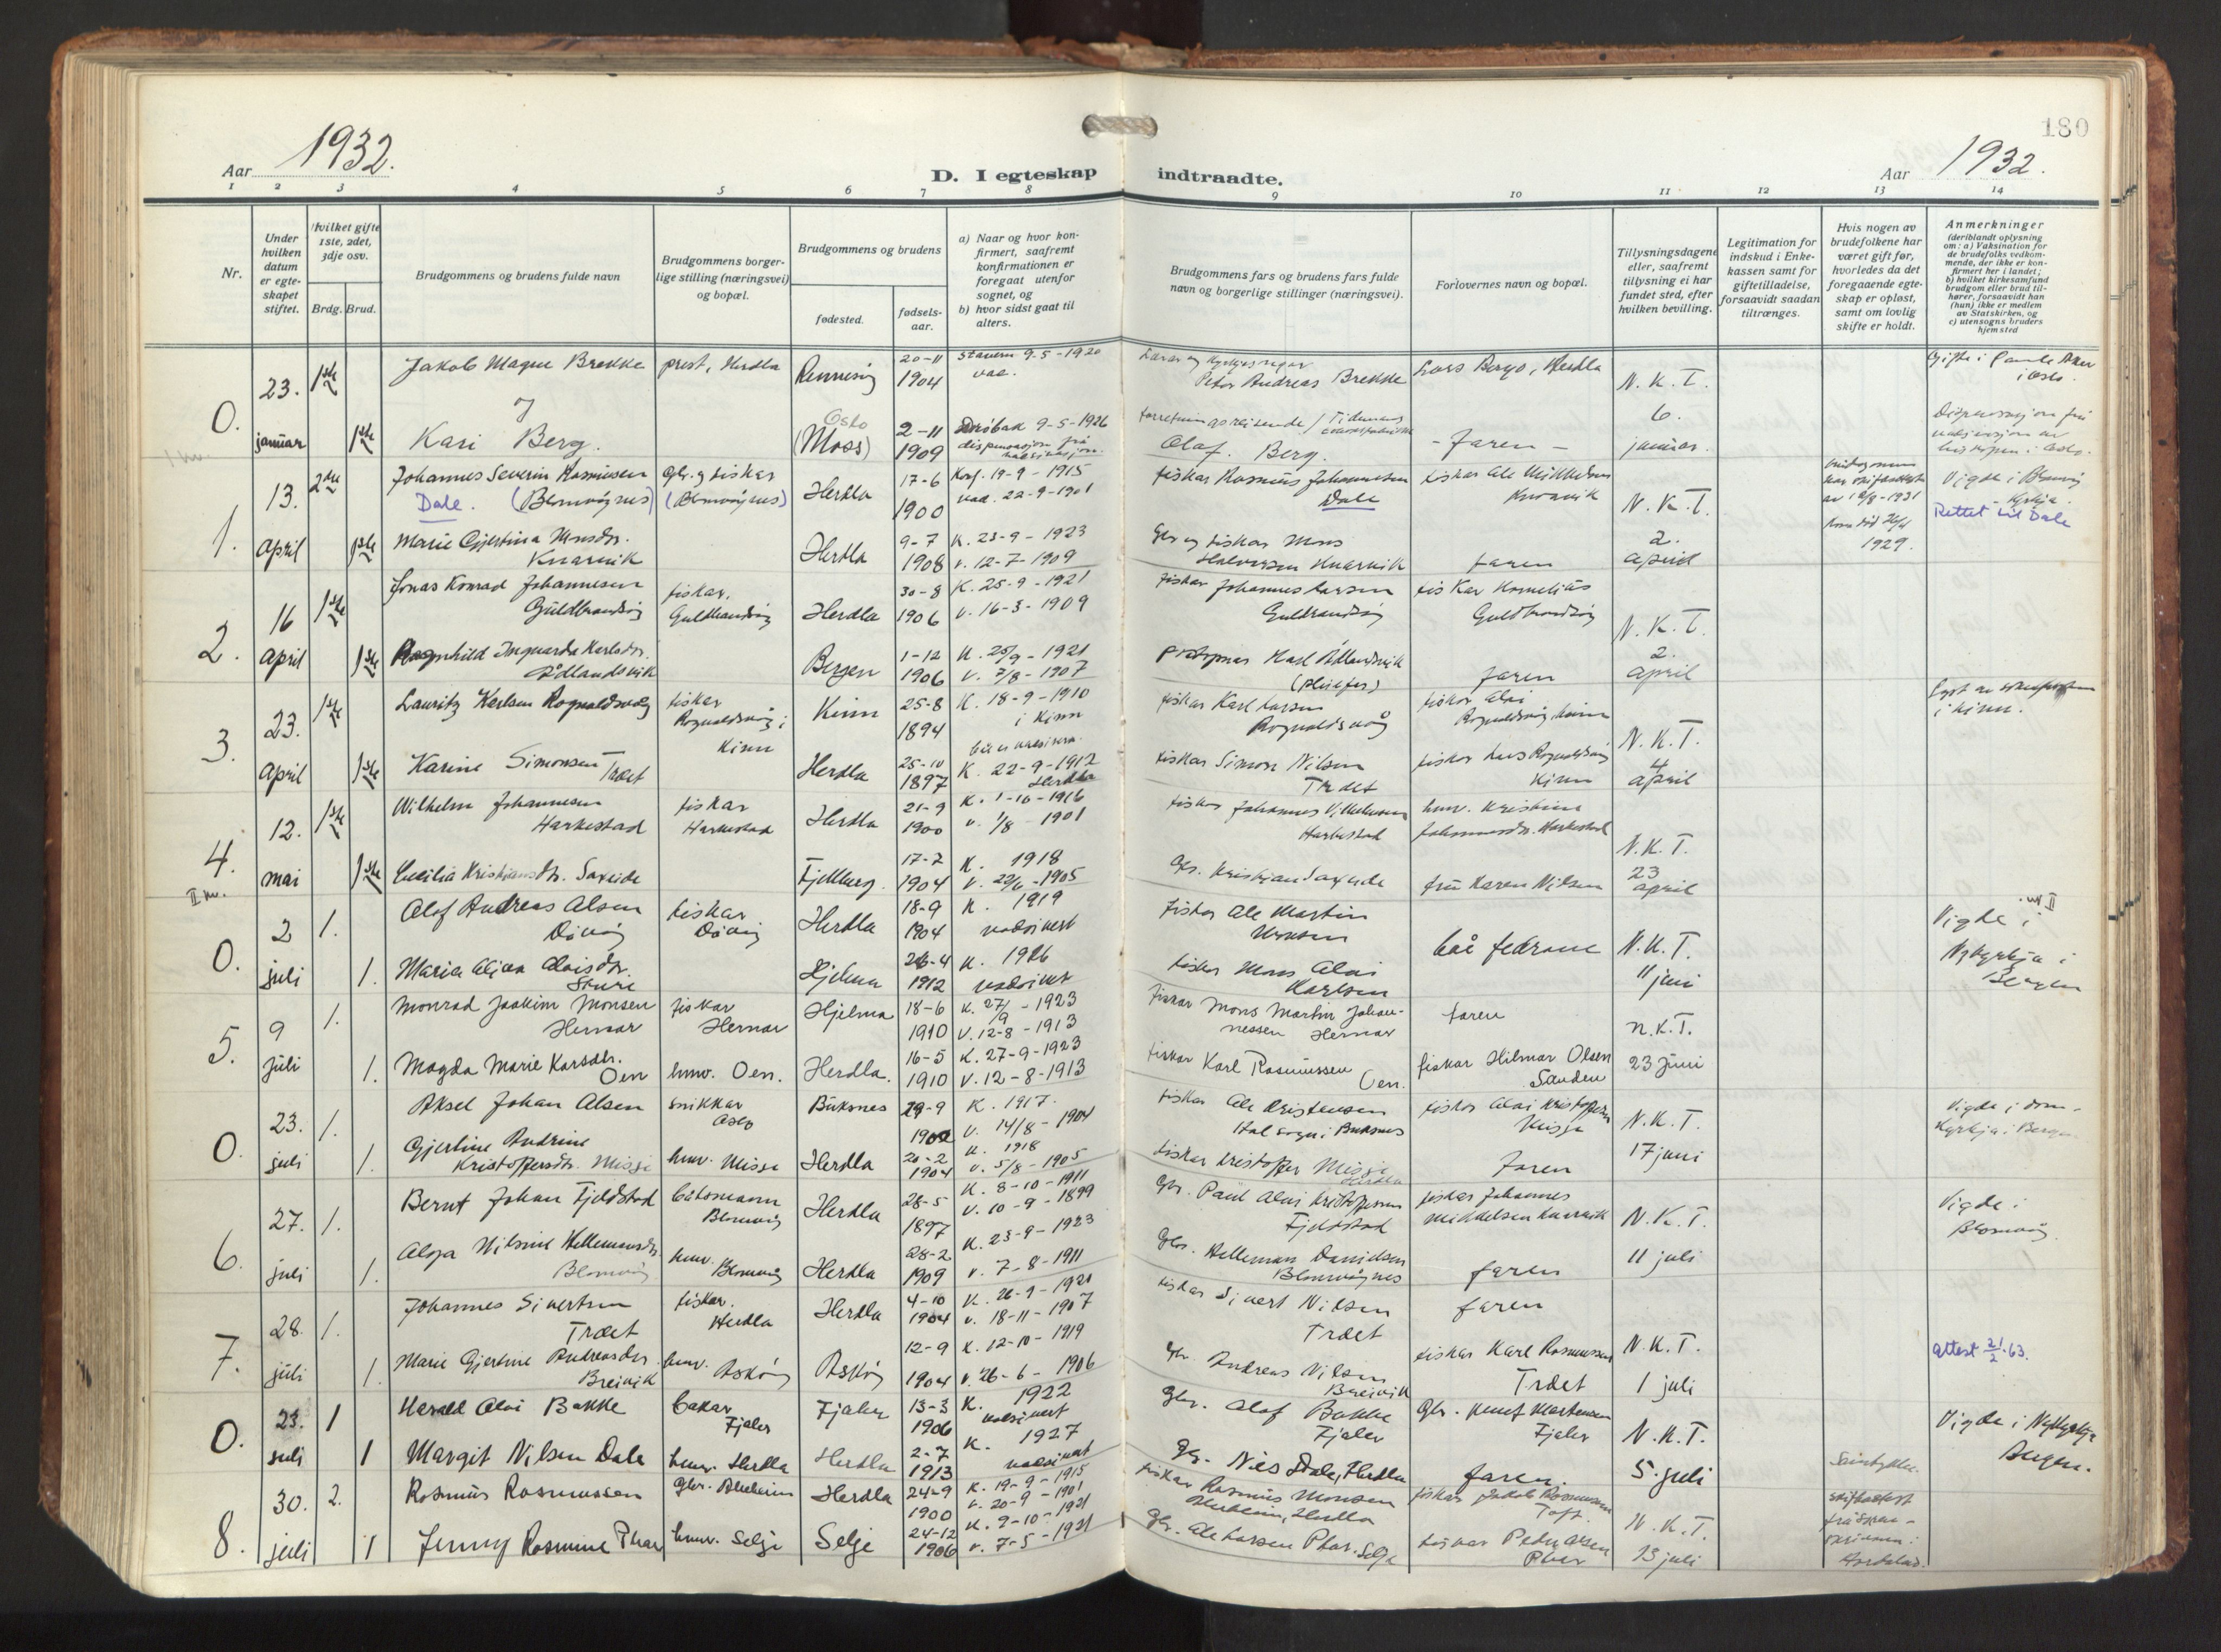 180
Aar 1932.
D. I egteskap indtraadte.
Aar 1932.
1 2 3 4 5 6 7 8 9 10 11 12 13 14
Nr.
Under hvilken datum er egteskapet stiftet.
Hvilket gifte 1ste, 2det, 3dje osv.
Brdg. Brud.
Brudgommens og brudens fulde navn
Brudgommens borgerlige stilling (næringsvei) og bopæl.
Brudgommens og brudens
fødested.
fødselsaar.
a) Naar og hvor konfirmert, saafremt konfirmationen er foregaat utenfor sognet, og
b) hvor sidst gaat til alters.
Brudgommens fars og brudens fars fulde navn og borgerlige stillinger (næringsvei).
Forlovernes navn og bopæl.
Tillysningsdagene eller, saafremt tillysning ei har fundet sted, efter hvilken bevilling.
Legitimation for indskud i Enkekassen samt for giftetilladelse, forsaavidt saadan tiltrænges.
Hvis nogen av brudefolkene har været gift før, hvorledes da det foregaaende egteskap er opløst, samt om lovlig skifte er holdt.
Anmerkninger
(deriblandt oplysning om: a) Vaksination for de brudefolks vedkommende, der ikke er konfirmert her i landet;
b) hvilket kirkesamfund brudgom eller brud tilhører, forsaavidt han (hun) ikke er medlem av Statskirken, og
c) utensogns bruders hjemsted
0. 23. januar 1ste Jakob Magne Brekke prest, Herdla Rennesøy 20-11 1904 Stavern 9-5-1920 vac. Peter Andreas Brekke Lars Bergo, Herdla N.K.T.
1ste Kari Berg. Oslo (Moss) 2-11 1909 Drøbak 9-5-1926 dispensasjon frå Olaf Berg. - Faren - 6. januar
1. 13. april 2dre Johannes Severin Rasmusen Dale. (Blomvågnes) gbr. og fiskar (Blomvågnes) Herdla 17-6 1900 Konf. 19-9-1915 vac. 22-9-1901 fiskar Rasmus Johannesen Dale fiskar Ole Mikkelsen Knarvik N.K.T. Vigde i Blomvåg Kyrkja. Rettet til Dale
1ste Marie Gjertina Monsdtr. Knarvik Herdla 9-7 1908 K. 23-9-1923 v. 12-7-1909 Gbr og fiskar Mons Halvorsen Knarvik faren 2. april 1929.
2. 16 april 1ste Jonas Konrad Johannesen Guldbrandsøy fiskar, Guldbrandsøy Herdla 30-8 1906 K. 25-9-1921 v. 16-3-1909 fiskar Johannes Larsen Guldbrandsøy fiskar Kornelius Guldbrandsøy N.K.T.
1ste Ragnhild Ingvarda Karlsdtr. Ådlandsvik Bergen 1-12 1906 K. 25/9-1921 v. 7/8-1907 Karl Ådlandsvik (pleiefar) faren 2. april
3. 23. april 1ste Lauritz Karlsen Rognaldsvåg fiskar Rognaldsvåg i Kinn Kinn 25-8 1894 K. 18-9-1910 i Kinn fiskar Karl Larsen Rognaldsvåg fiskar Alai Rognaldsvåg Kinn N.K.T. i Kinn.
1ste Karine Simonsen Trædet Herdla 25-10 1897 K. 22-9-1912 Herdla fiskar Simon Nilsen Trædet fiskar Lars Rognaldsvåg Kinn 4 april
4. 12. mai 1ste Wilhelm Johannesen Harkestad fiskar Harkestad Herdla 21-9 1900 K. 1-10-1916 v. 1/8-1901 fiskar Johannes Vilhelmsen Harkestad husv. Kristina Johannesdtr. Harkestad N.K.T.
1ste Cecilia Kristiansdtr. Saxeide Fjellberg. 17-7 1904 K. 1918 v. 22/6-1905 Gbr. Kristian Saxeide frü Karen Nilsen 23 april
0. 2 juli 1. Olaf Andreas Olsen Dåvøy fiskar Dåvøy Herdla 18-9 1904 K. 1919 vaksinert fiskar Ole Martin Monsen båe fedrane N.K.T. Vigde i Nykyrkja i Bergen
1. Maria Aljva Aloisdtr. Sture Hjelma 26-4 1912 K. 1926 vaksinert fiskar Mons Aloi Karlsen 11 juni
5. 9 juli 1. Monrad Joakim Monsen Hernar fiskar Hernar Hjelma 18-6 1910 K. 27/9-1923 V. 12-8-1913 fiskar Mons Martin Johannessen Hernar faren N.K.T.
1. Magda Marie Karsdtr. Oen husv. Oen. Herdla. 16-5 1910 K. 27-9-1923 V. 12-8-1913 fiskar Karl Rasmussen Oen. fiskar Hilmar Olsen Sanden 23 juni
0. 23. juli 1. Aksel Johan Olsen snikkar Oslo Buksnes 29-9 1902 K. 1917. V. 14/8-1904 fiskar Ole Kristensen Hol sogn i Buksnes fiskar Aloi Kristoffersen Misje N.K.T. Vigde i domkyrkja i Bergen
1. Gjertine Andrine Kristoffersdtr. Misje husv. Misje Herdla 20-2 1904 K. 1918 v. 5/8-1905 fiskar Kristoffer Misje Herdla faren 17 juni
6. 27. juli 1. Bernt Johan Fjeldstad båtsmann Blomvåg Herdla 28-5 1897 K. 8-10-1911 V. 10-9-1899 Gbr. Paul Aloi Kristoffersen Fjeldstad fiskar Johannes Mikkelsen Knarvik N.K.T. Vigde i Blomvåg
1. Alvja Nilsine Hellemansdtr. Blomvåg husv. Blomvåg Herdla 28-2 1909 K. 23-9-1923 v. 7-8-1911 Gbr. Helleman Danielsen Blomvågnes faren 11 juli
7. 28. juli 1. Johannes Sivertsen Trædet fiskar. Herdla Herdla 4-10 1904 K. 26-9-1921 v. 18-11-1907 fiskar Sivert Nilsen Trædet faren N.K.T. attest 21/2.63.
1. Marie Gjertine Andreasdtr. Breivik husv. Askøy Askøy 12-9 1904 K. 12-10-1919 v. 26-6-1906 gbr. Andreas Nilsen Breivik fiskar Karl Rasmussen Trædet 1 juli
0. 23. juli 1 Harald Aloi Bakke bakar Fjaler Fjaler 13-3 1906 K. 1922 vaksinert Gbr. Olaf Bakke Fjaler Gbr. Knut Martensen Fjaler N.K.T. Vigde i Nykyrkja Bergen.
1 Margit Nilsen Dale husv. Herdla Herdla 2-7 1913 K. 1927 vaksinert Gbr. Nils Dale, Herdla faren. 5. juli
8. 30. juli 2. Rasmus Rasmussen gbr. Herdla 24-9 1900 K. 19-9-1915 v. 20-9-1901 fiskar Rasmus Monsen Herdla fiskar Jakob Rasmussen Toft. N.K.T.
1 Jenny Rasmine Phar husv. Selje Selje 24-12 1906 K. 9-10-1921 v. 7-5-1921 Gbr. Ole Larsen Phar. Selje fiskar Peder Olsen Phar 13 juli